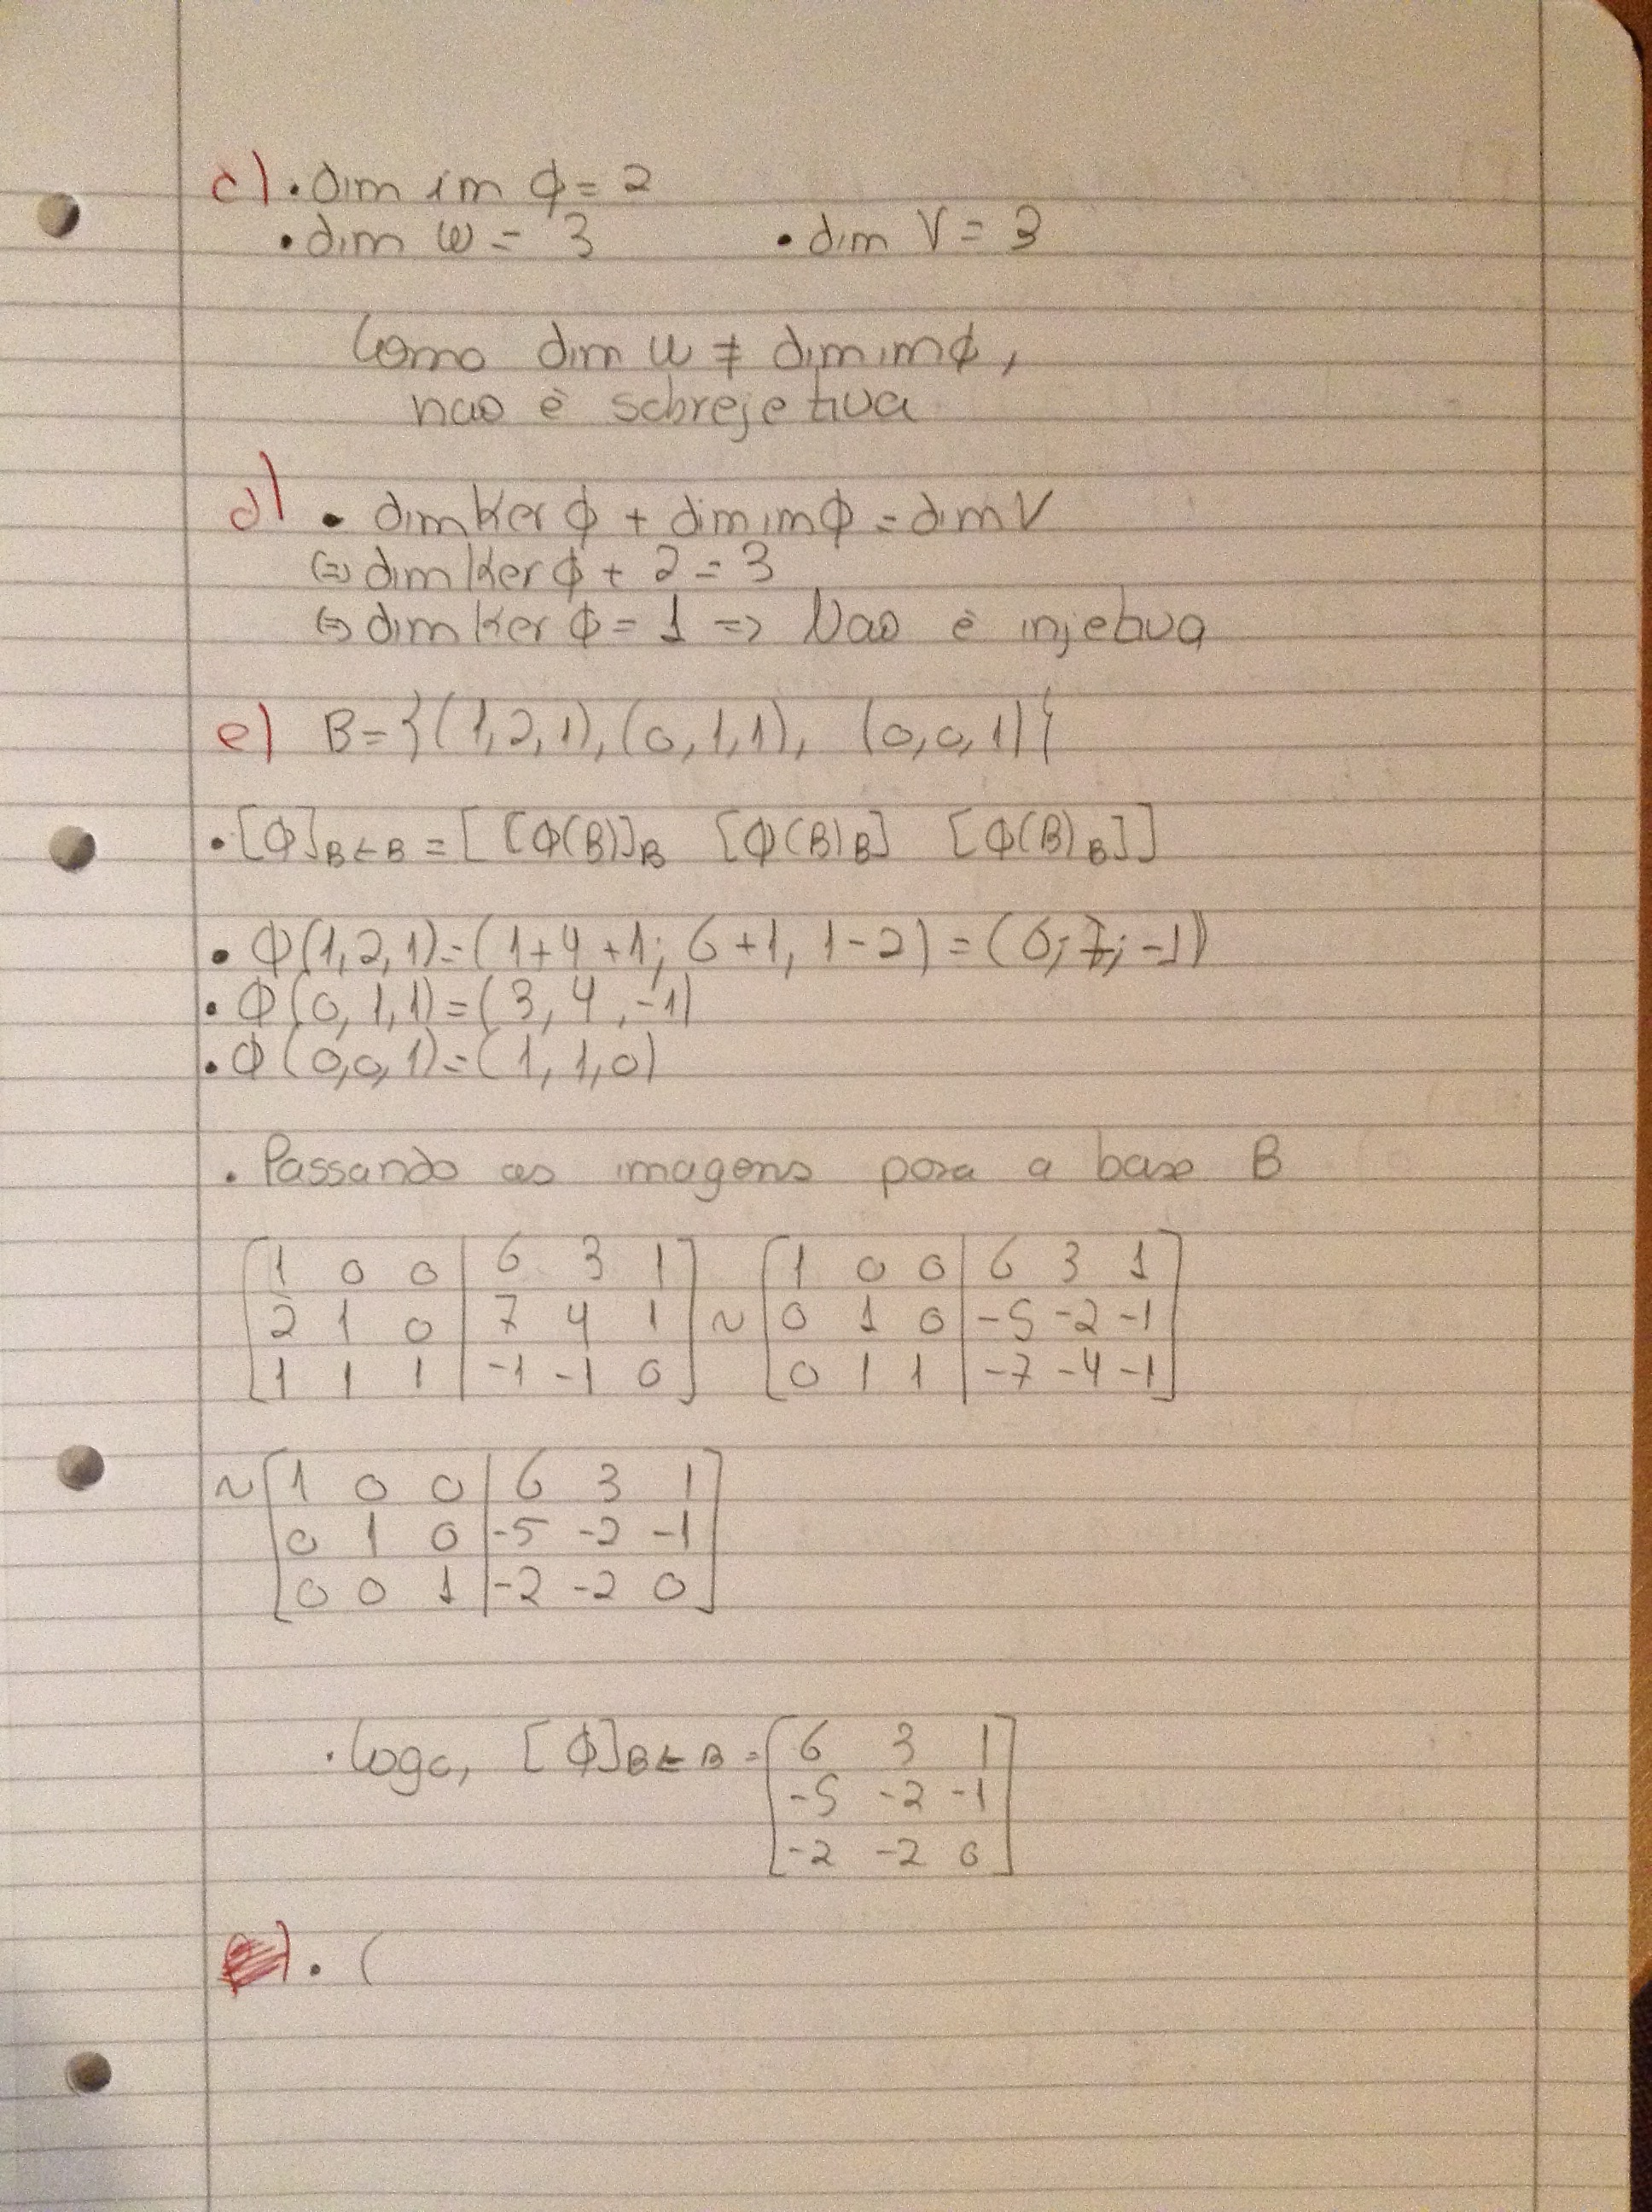 c) • dim im ϕ = 2
• dim W = 3 • dim V = 3
Como dim W ≠ dim im ϕ,
nao è sobrejetiva
d) • dim Ker ϕ + dim im ϕ = dim V
⇔ dim Ker ϕ + 2 = 3
⇔ dim Ker ϕ = 1 => Nao è injetiva
e) B = {(1,2,1), (0,1,1), (0,0,1)}
• [ϕ]B←B = [ [ϕ(B)]B [ϕ(B)B] [ϕ(B)B]]
• ϕ(1,2,1) = (1+4+1; 6+1, 1-2) = (6; 7; -1)
• ϕ(0,1,1) = (3, 4, -1)
• ϕ(0,0,1) = (1, 1, 0)
• Passando as imagens para a base B
[1 0 0 | 6 3 1] ~ [1 0 0 | 6 3 1]
[2 1 0 | 7 4 1] [0 1 0 | -5 -2 -1]
[1 1 1 | -1 -1 0] [0 1 1 | -7 -4 -1]
~ [1 0 0 | 6 3 1]
[0 1 0 | -5 -2 -1]
[0 0 1 | -2 -2 0]
• Logo, [ϕ]B←B = [6 3 1]
[-5 -2 -1]
[-2 -2 0]
) • (